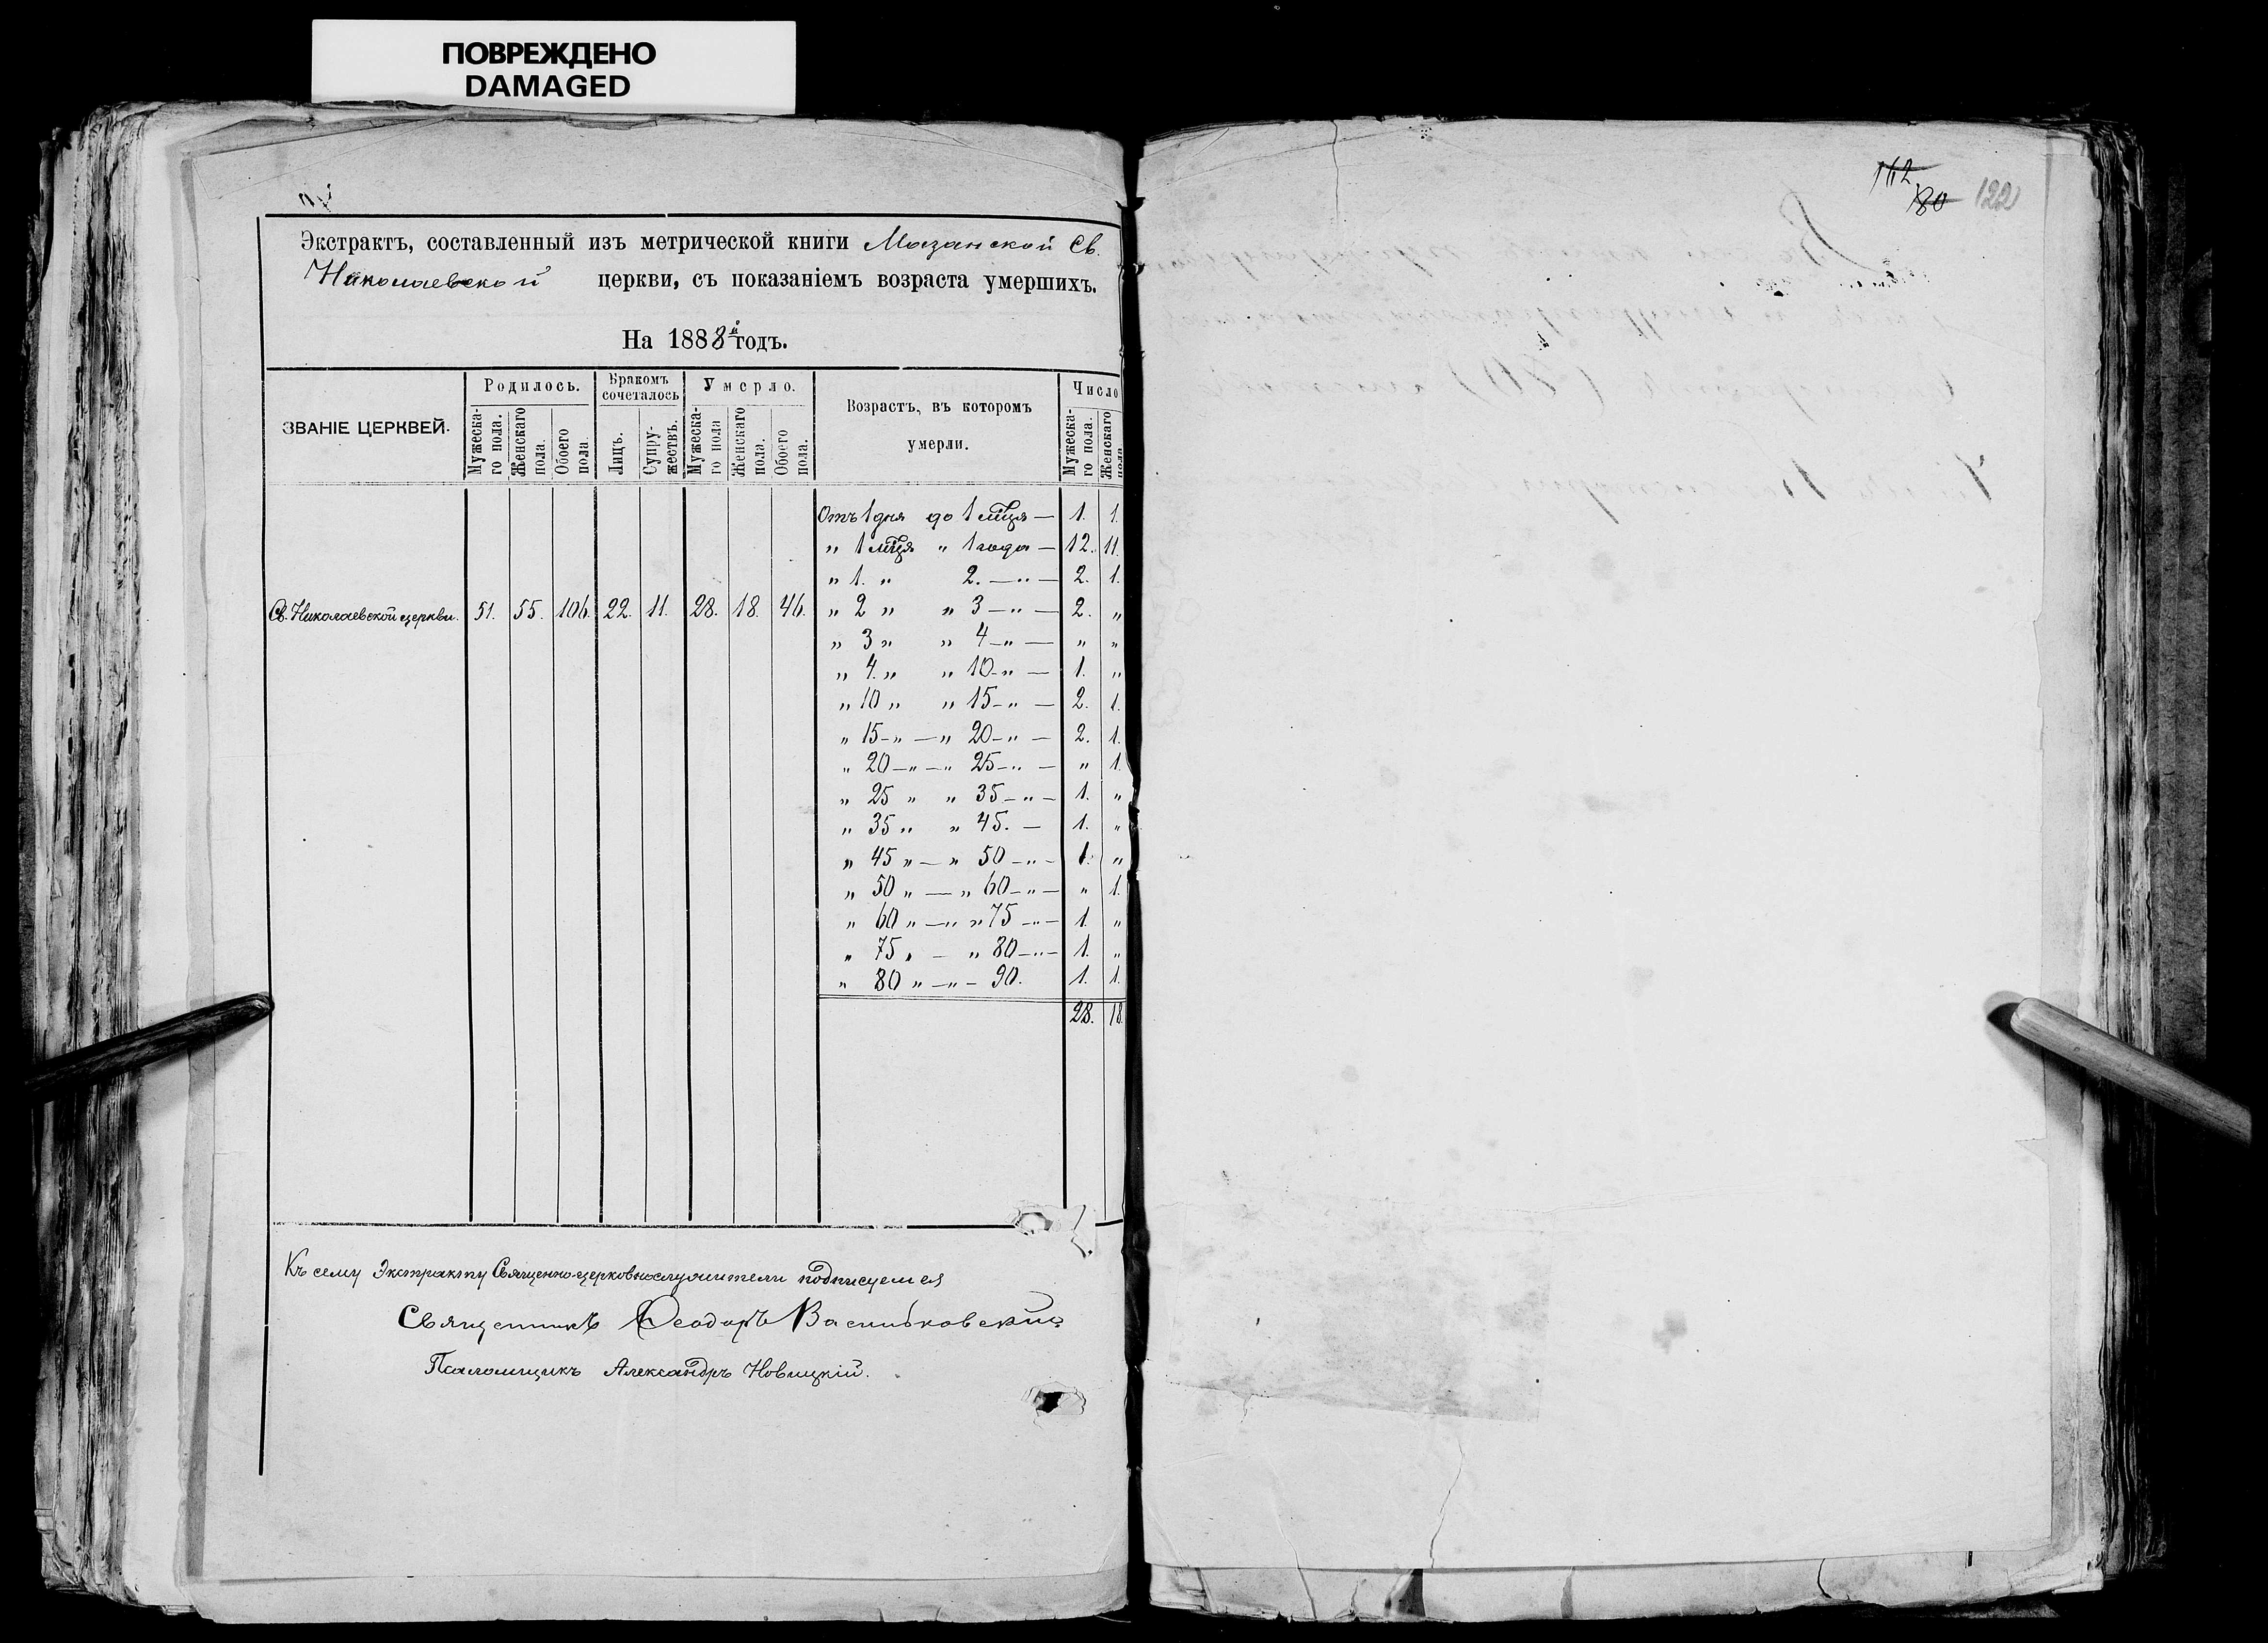 ПОВРЕЖДЕНО
DAMAGED
162
80 122
Экстрактъ, составленный изъ метрической книги Мазанской Св.
Николаевской церкви, съ показаніемъ возраста умершихъ.
На 1883й годъ.
ЗВАНІЕ ЦЕРКВЕЙ.
Родилось.
Мужеска-го пола.
Женскаго пола.
Обоего пола.
Бракомъ сочеталось
Лицъ.
Супру-жествъ.
Умерло.
Мужеска-го пола
Женскаго пола.
Обоего пола.
Возрастъ, въ которомъ
умерли.
Число
Мужеска-го пола.
Женскаго пола
Отъ 1 дня до 1 мѣця — 1. 1.
„ 1 мѣця „ 1 года — 12. 11.
„ 1. „ 2. — „ — 2. 1.
Св. Николаевской церкви. 51. 55. 106. 22. 11. 28. 18. 46. „ 2 „ „ 3 — „ — 2. „
„ 3 „ „ 4 — „ — „ „
„ 4. „ „ 10 - „ — 1. „
„ 10 „ „ 15 - „ — 2. 1.
„ 15 - „ — „ 20 - „ — 2. 1.
„ 20 — „ — „ 25 - „ — „ 1.
„ 25 „ „ 35 - „ — 1. „
„ 35 „ „ 45. — 1. „
„ 45 „ — „ 50 - „ - 1. „
„ 50 „ — „ 60 - „ — „ 1.
„ 60 „ — „ „ 75 - „ — 1. „
„ 75 „ — „ 80 - „ — 1. „
„ 80 „ — „ - 90. 1. 1.
28. 18.
Къ сему Экстракту Священно-церковнослужители подписуемся
Священникъ Ѳеодоръ Васильковскій
Псаломщикъ Александръ Новицкій.